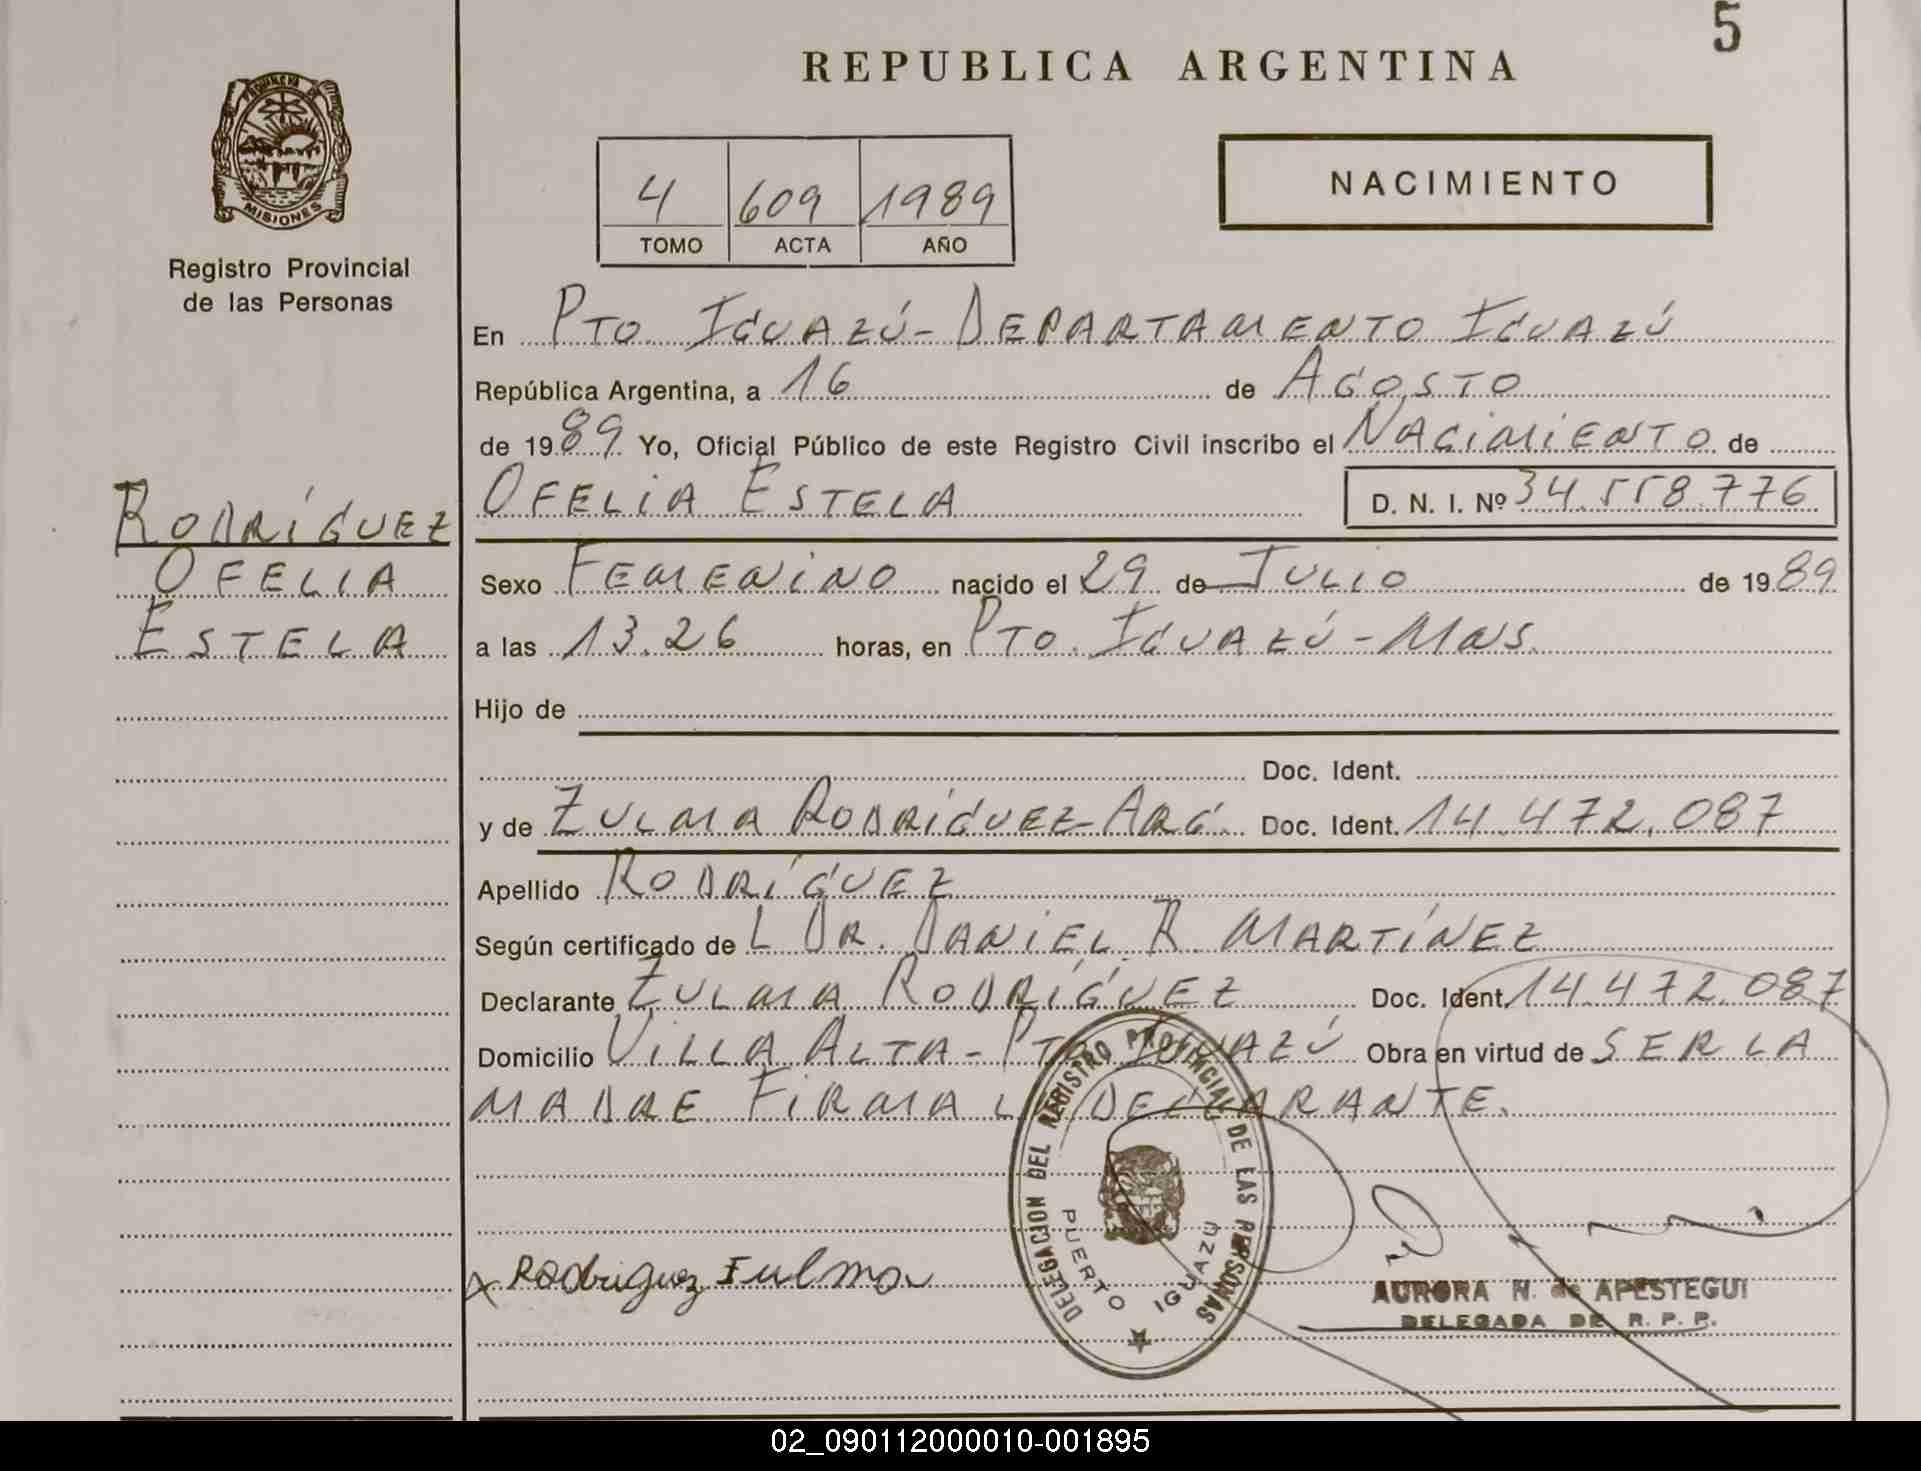 5
REPUBLICA ARGENTINA
PROVINCIA DE
MISIONES
Registro Provincial
de las Personas
4 609 1989
TOMO ACTA AÑO
NACIMIENTO
En PTO. IGUAZÚ - DEPARTAMENTO IGUAZÚ
República Argentina, a 16 de AGOSTO
de 1989 Yo, Oficial Público de este Registro Civil inscribo el NACIMIENTO de
OFELIA ESTELA D. N. I. Nº 34.558.776
RODRÍGUEZ
OFELIA
ESTELA
Sexo FEMENINO nacido el 29 de JULIO de 1989
a las 13.26 horas, en PTO. IGUAZÚ - MNS.
Hijo de
Doc. Ident.
y de ZULMA RODRÍGUEZ - ARG. Doc. Ident. 14.472.087
Apellido RODRÍGUEZ
Según certificado de L DR. DANIEL R. MARTÍNEZ
Declarante ZULMA RODRÍGUEZ Doc. Ident. 14.472.087
Domicilio VILLA ALTA - PTO. IGUAZÚ Obra en virtud de SER LA
MADRE FIRMA LA DECLARANTE.
DELEGACION DEL REGISTRO PROVINCIAL DE LAS PERSONAS
PUERTO IGUAZÚ
x Rodriguez Zulma
AURORA N. de APESTEGUI
DELEGADA DE R. P. P.
02_090112000010-001895